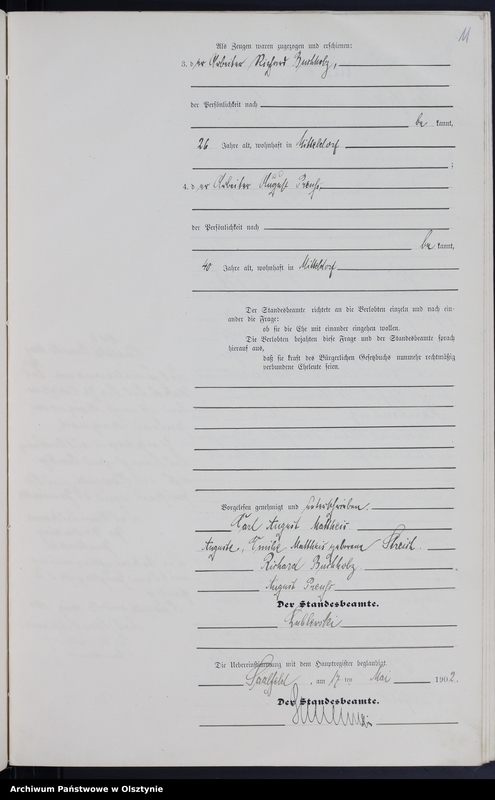 11
Als Zeugen waren zugezogen und erschienen:
3. der Arbeiter Richard Buchholz,
der Persönlichkeit nach
be kannt,
26 Jahre alt, wohnhaft in Mitteldorf
;
4. der Arbeiter August Preuß,
der Persönlichkeit nach
be kannt,
40 Jahre alt, wohnhaft in Mitteldorf
Der Standesbeamte richtete an die Verlobten einzeln und nach ein-
ander die Frage:
ob sie die Ehe mit einander eingehen wollen.
Die Verlobten bejahten diese Frage und der Standesbeamte sprach
hierauf aus,
daß sie kraft des Bürgerlichen Gesetzbuchs nunmehr rechtmäßig
verbundene Eheleute seien.
Vorgelesen, genehmigt und unterschrieben.
Karl August Mattheis
Auguste, Emilie Mattheis geborene Streich.
Richard Buchholz
August Preuß
Der Standesbeamte.
Die Uebereinstimmung mit dem Hauptregister beglaubigt
Saalfeld, am 17 ten Mai 1902.
Der Standesbeamte.
Archiwum Państwowe w Olsztynie